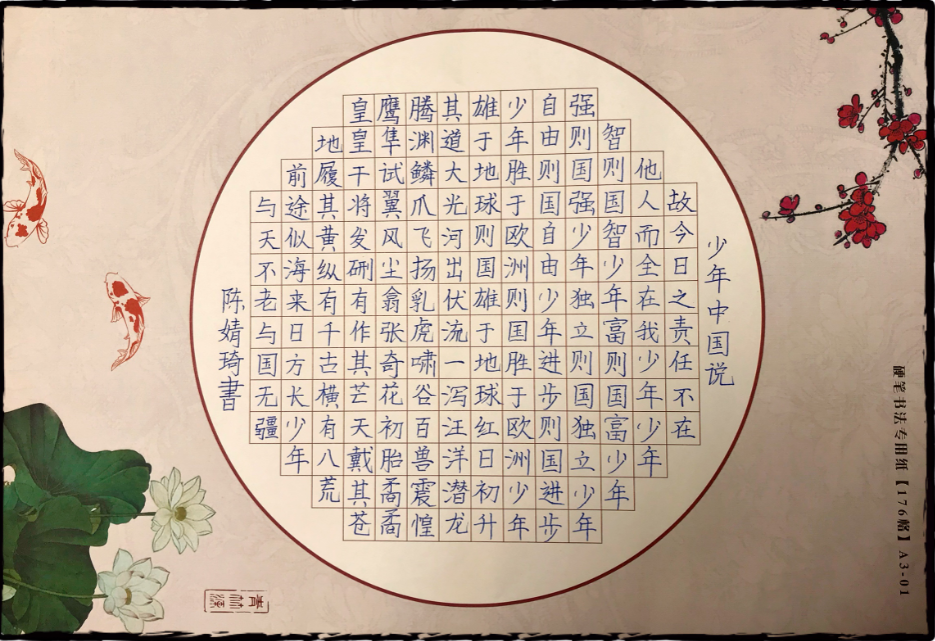 少年中国说
故今日之责任不在
他人而全在我少年少年
智则国智少年富则国富少年
强则国强少年独立则国独立少年
自由则国自由少年进步则国进步
少年胜于欧洲则国胜于欧洲少年
雄于地球则国雄于地球红日初升
其道大光河出伏流一泻汪洋潜龙
腾渊鳞爪飞扬乳虎啸谷百兽震惶
鹰隼试翼风尘翕张奇花初胎矞矞
皇皇干将发硎有作其芒天戴其苍
地履其黄纵有千古横有八荒
前途似海来日方长少年
与天不老与国无疆
陈婧琦書
硬笔书法专用纸【176格】A3-01